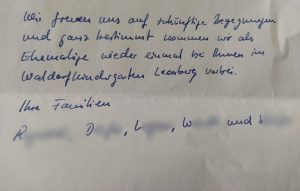 Wir freuen uns auf zukünftige Begegnungen
und ganz bestimmt kommen wir als
Ehemalige wieder einmal bei Ihnen im
Waldorfkindergarten Leonberg vorbei.
Ihre Familien
R, D, L, W und S